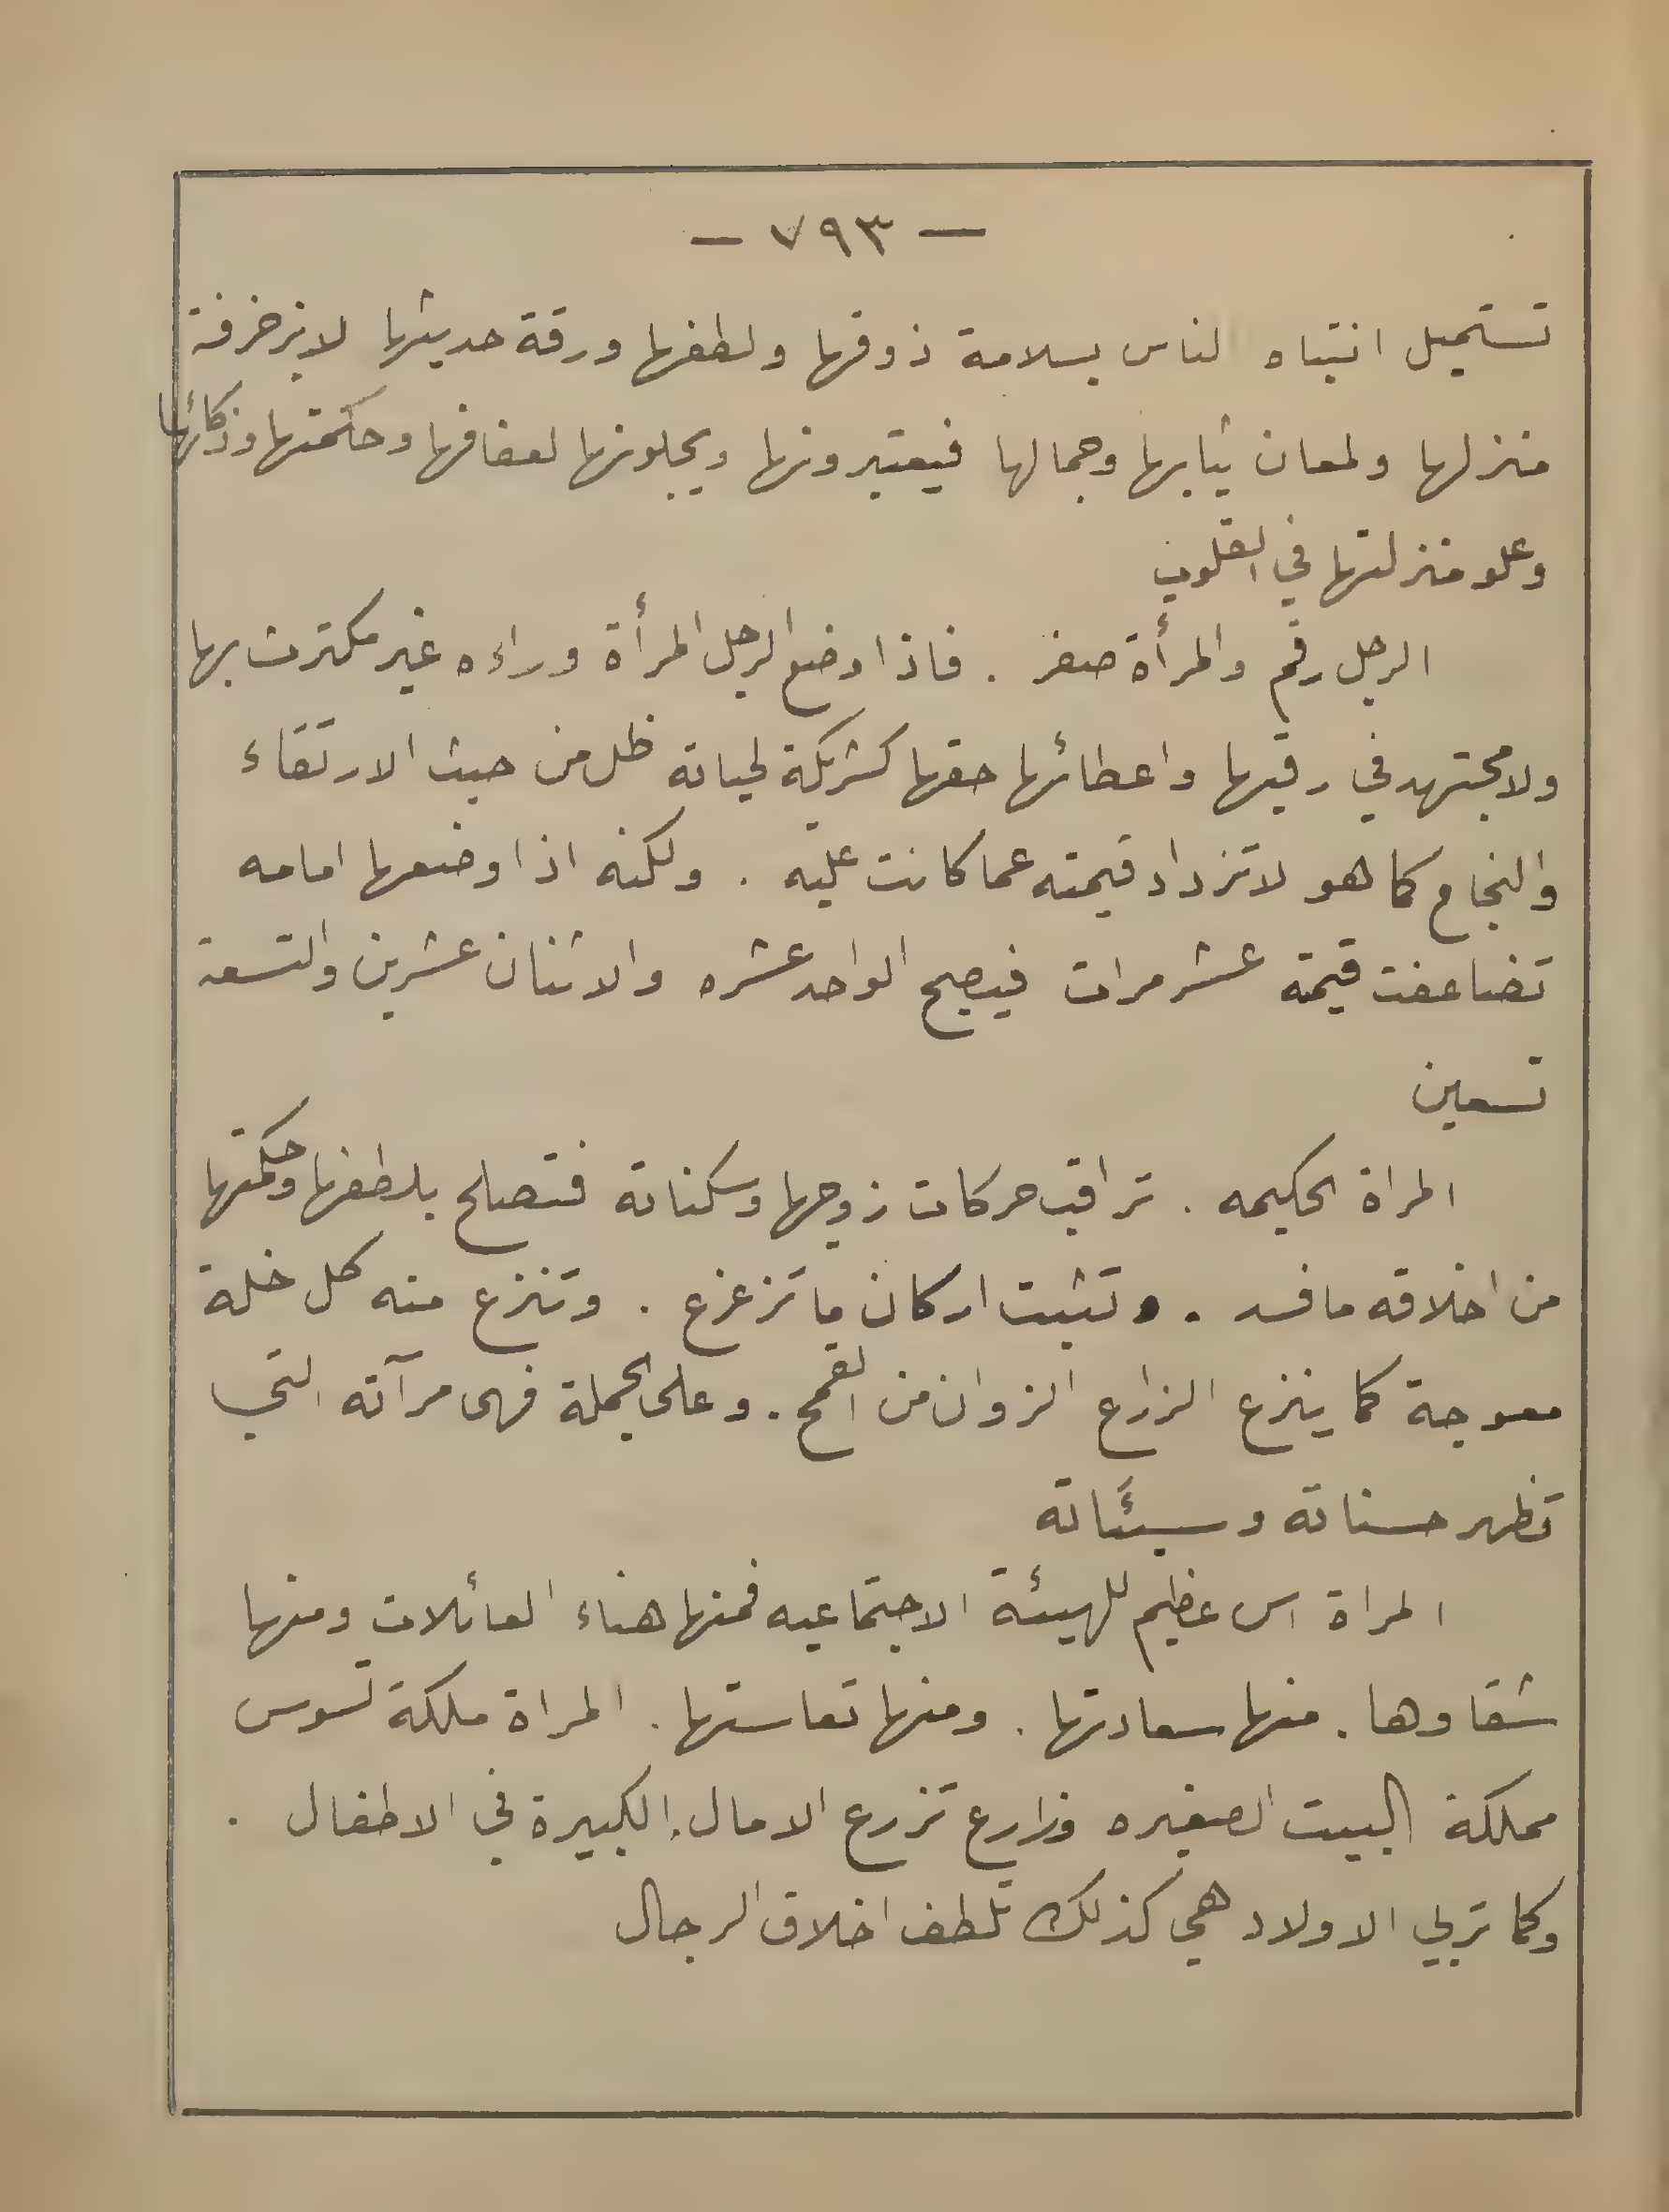 — ٧٩٣ —
تستميل انتباه الناس بسلامة ذوقها ولطفها ورقة حديثها لا بزخرفة
منزلها ولمعان ثيابها وجمالها فيعتبرونها ويجلونها لعفافها وحكمتها وذكائها
وعلو منزلتها في القلوب
الرجل رقم والمرأة صفر . فاذا وضع الرجل المرأة وراءه غير مكترث بها
ولا مجتهد في رقيها واعطائها حقها كشريكة لحياته ظل من حيث الارتقاء
والنجاح كما هو لا تزداد قيمته عما كانت عليه . ولكنه اذا وضعها امامه
تضاعفت قيمته عشر مرات فيصبح الواحد عشره والاثنان عشرين والتسعة
تسعين
المراة الحكيمه . تراقب حركات زوجها وسكناته فتصلح بلطفها وحكمتها
من اخلاقه ما فسد . وتثبت اركان ما تزعزع . وتنزع منه كل خلة
معوجة كما ينزع الزارع الزوان من القمح . وعلى الجملة فهى مرآته التي
تظهر حسناته وسيئاته
المراة اس عظيم للهيئة الاجتماعيه فمنها هناء العائلات ومنها
شقاوها . منها سعادتها . ومنها تعاستها . المراة ملكة تسوس
مملكة البيت الصغيره وزارع تزرع الامال الكبيرة في الاطفال .
وكما تربي الاولاد هي كذلك تلطف اخلاق الرجال